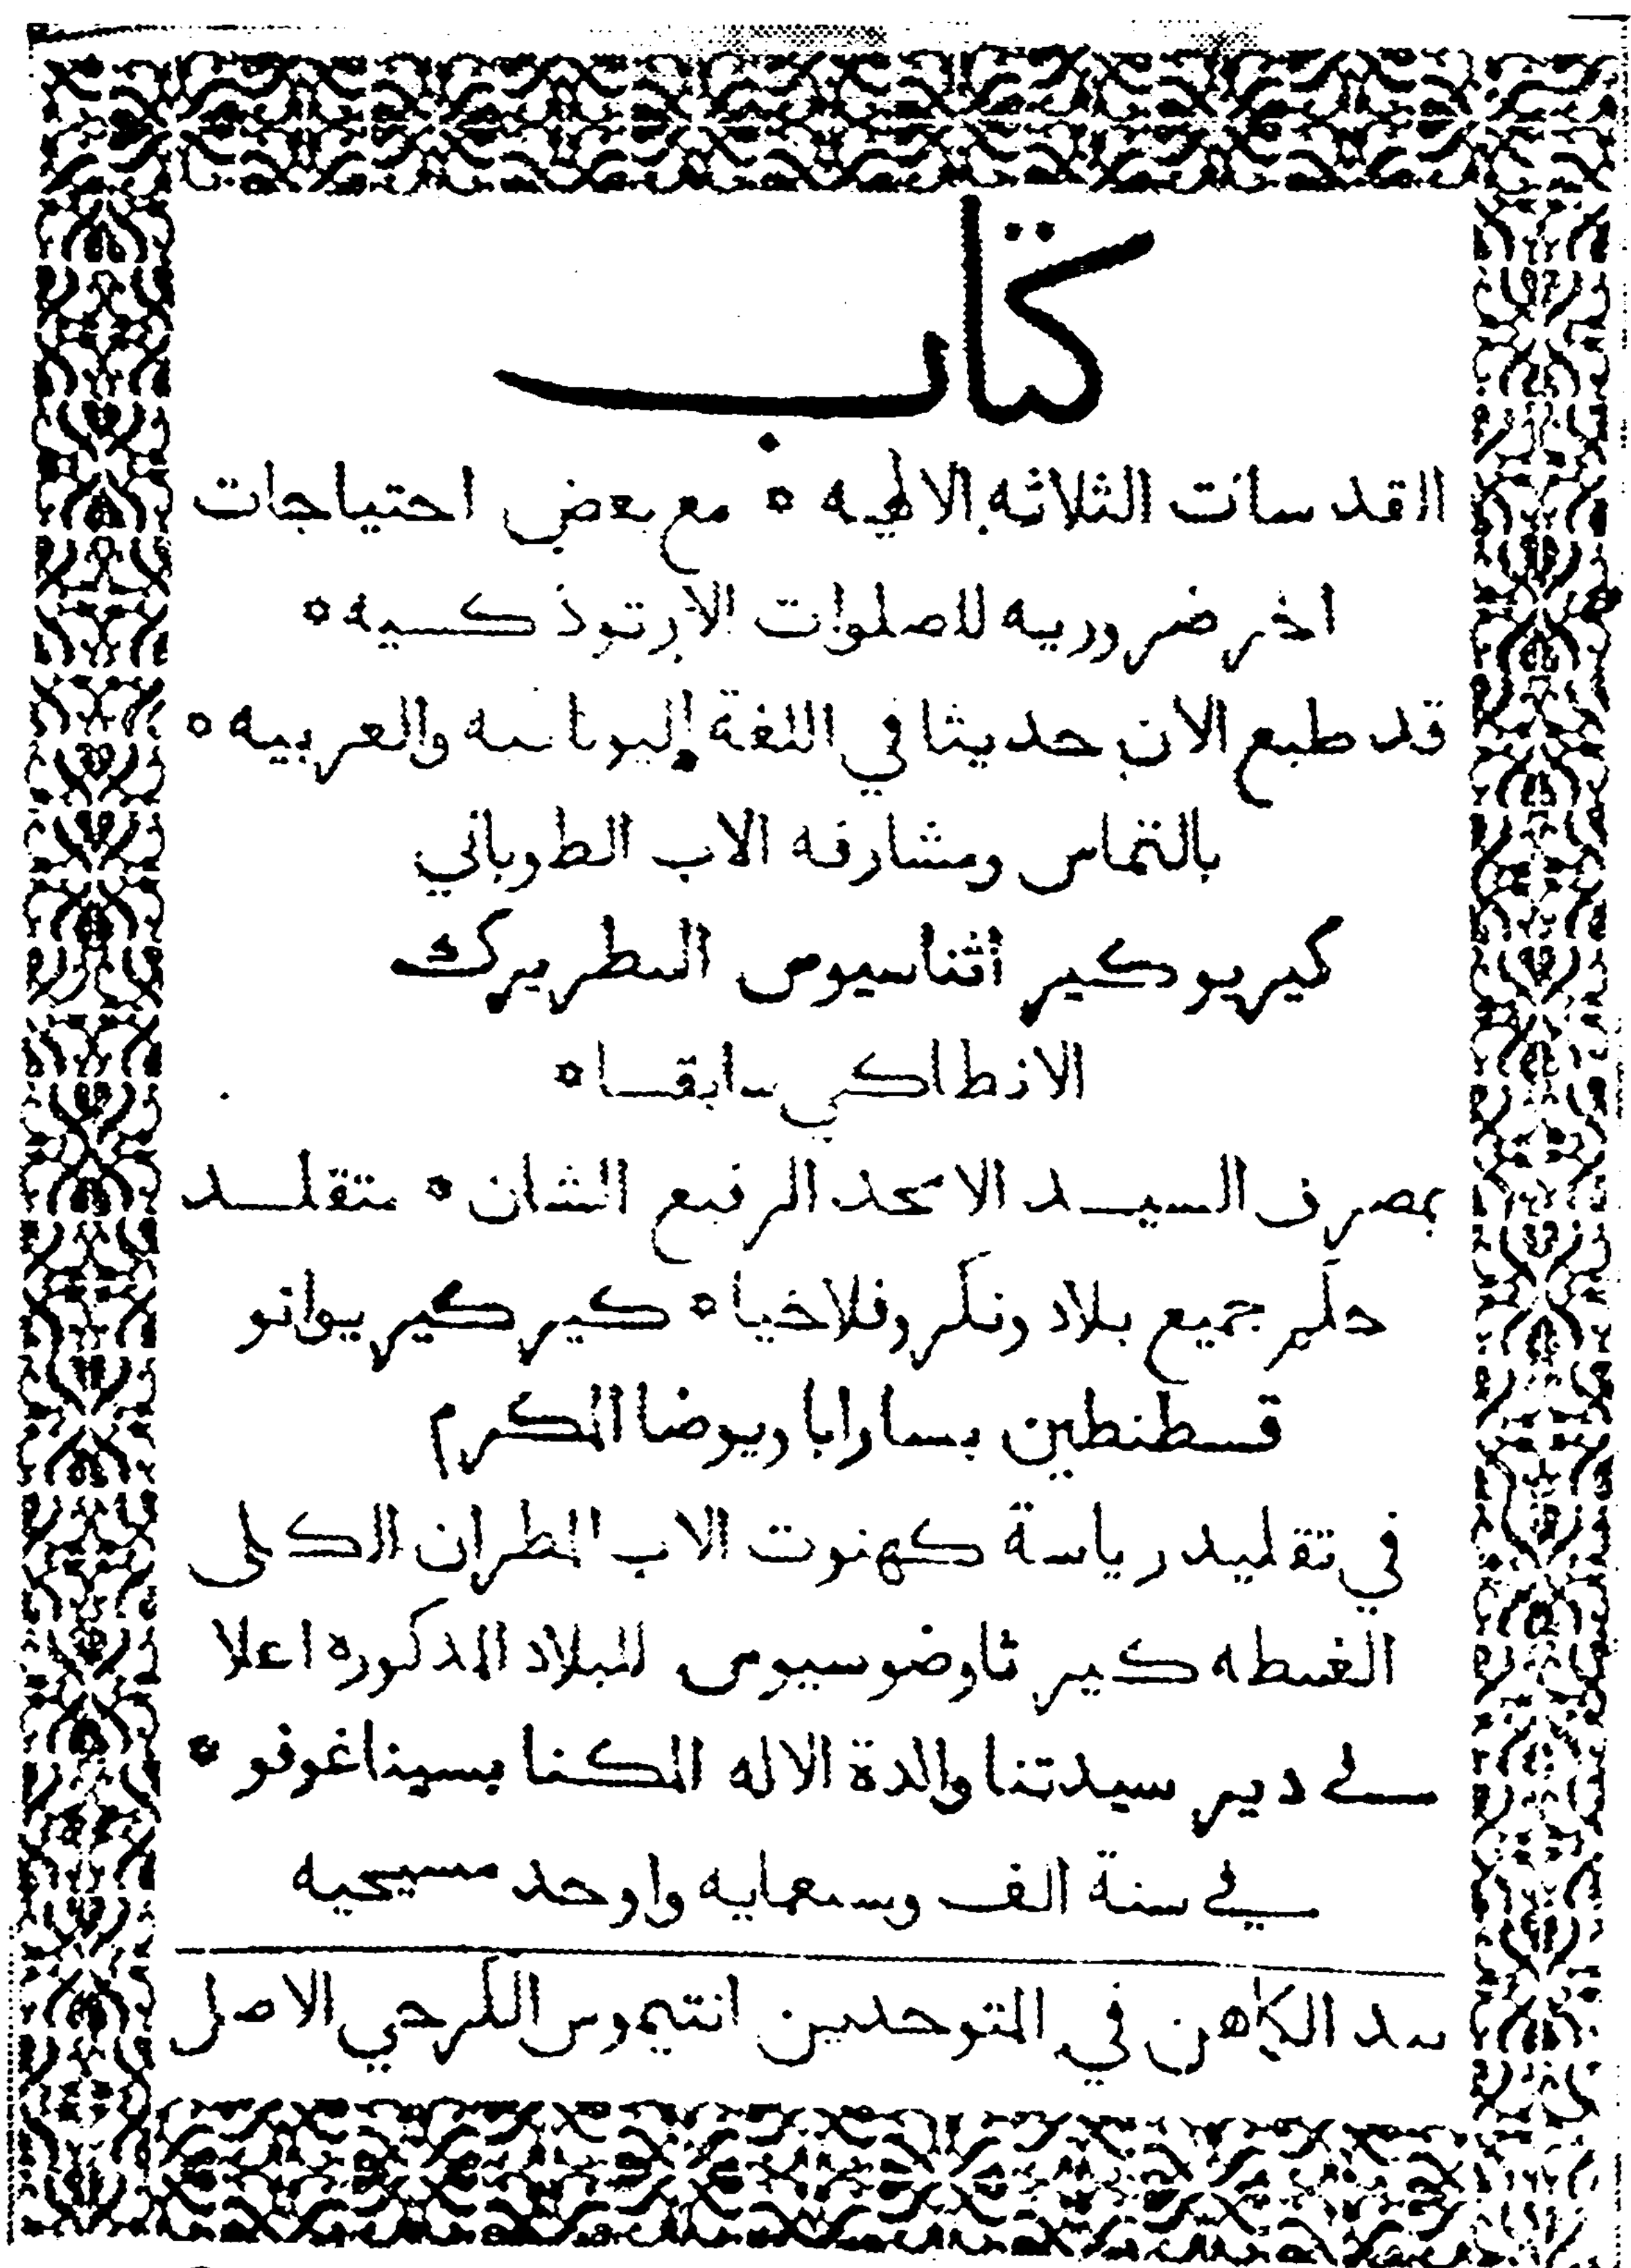 كتاب
القدسات الثلاثه الالهيه ٥ مع بعض احتياجات
اخر ضروريه للصلوات الارتوذكسيه ٥
قد طبع الان حديثا في اللغة اليونانيه والعربيه ٥
بالتماس ومشارفه الاب الطوباني
كيريو كير اثناسيوس البطريرك
الانطاكي سابقا ٥
بمصرف السيد الامجد الرفيع الشان ٥ متقلد
حكم جميع بلاد ونكروفلاخيا ٥ كير كير يوانو
قسطنطين بسارابا ويوضا المكرم
في تقليد رياسة كهنوت الاب المطران الكلي
الغبطه كير ثاوضوسيوس للبلاد المذكوره اعلا
في دير سيدتنا والدة الاله المكنا بسيناغوفو ٥
في سنة الف وسبعمايه واوحد مسيحيه
بيد الكاهن في المتوحدين انتيموس الكرجي الاصل